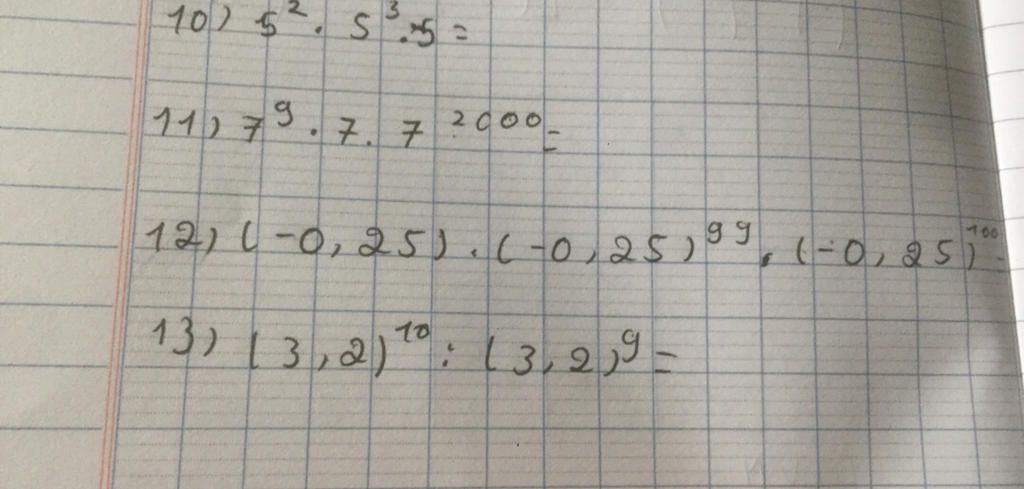 10) 5² · 5³ · 5 =
11) 7⁹ · 7 · 7²⁰⁰⁰ =
12) (-0,25) · (-0,25)⁹⁹ · (-0,25)¹⁰⁰ =
13) (3,2)¹⁰ : (3,2)⁹ =